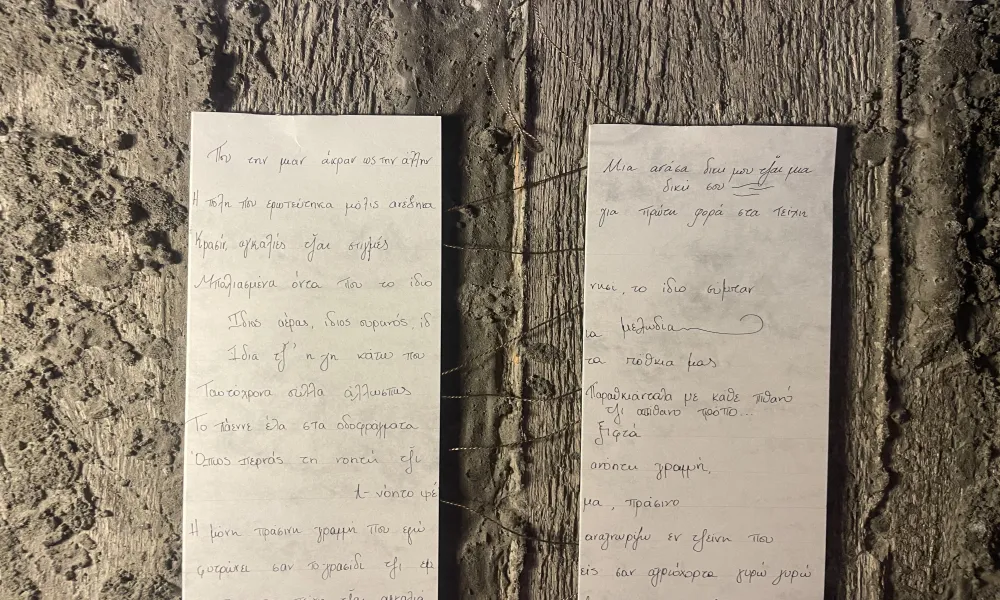 Που την μιαν άκραν ως την άλλην
Η πόλη που ερωτεύτηκα μόλις ανέβηκα
Κρασιά, αγκαλιές τζαι στιγμές
Μπαλιασμένα όντα που το ίδιο
Ίδιος αέρας, ίδιος ουρανός, ιδ
Ίδια τζ' η γη κάτω που
Ταυτόχρονα αλλά αλλιώτικα
Το πάεννε έλα στα οδοφράγματα
Όπως περνάς τη νοητή τζι
Η μόνη πράσινη γραμμή που εγώ
φυτρώνει σαν το γρασίδι τζι εμ
Μια ανάσα δική μου τζαι μια
δική σου
για πρώτη φορά στα τείχη
νησι, το ίδιο σύμπαν
ια μελωδία
τα πόθκια μας
Παραθκιάνταλα με κάθε πιθανό
τζι απίθανο τρόπο...
ξιφτά
ανόητη γραμμή,
μα, πράσινο
αναγνωρίζω εν τζείνη που
είς σαν αγριόχορτα γυρώ γυρώ